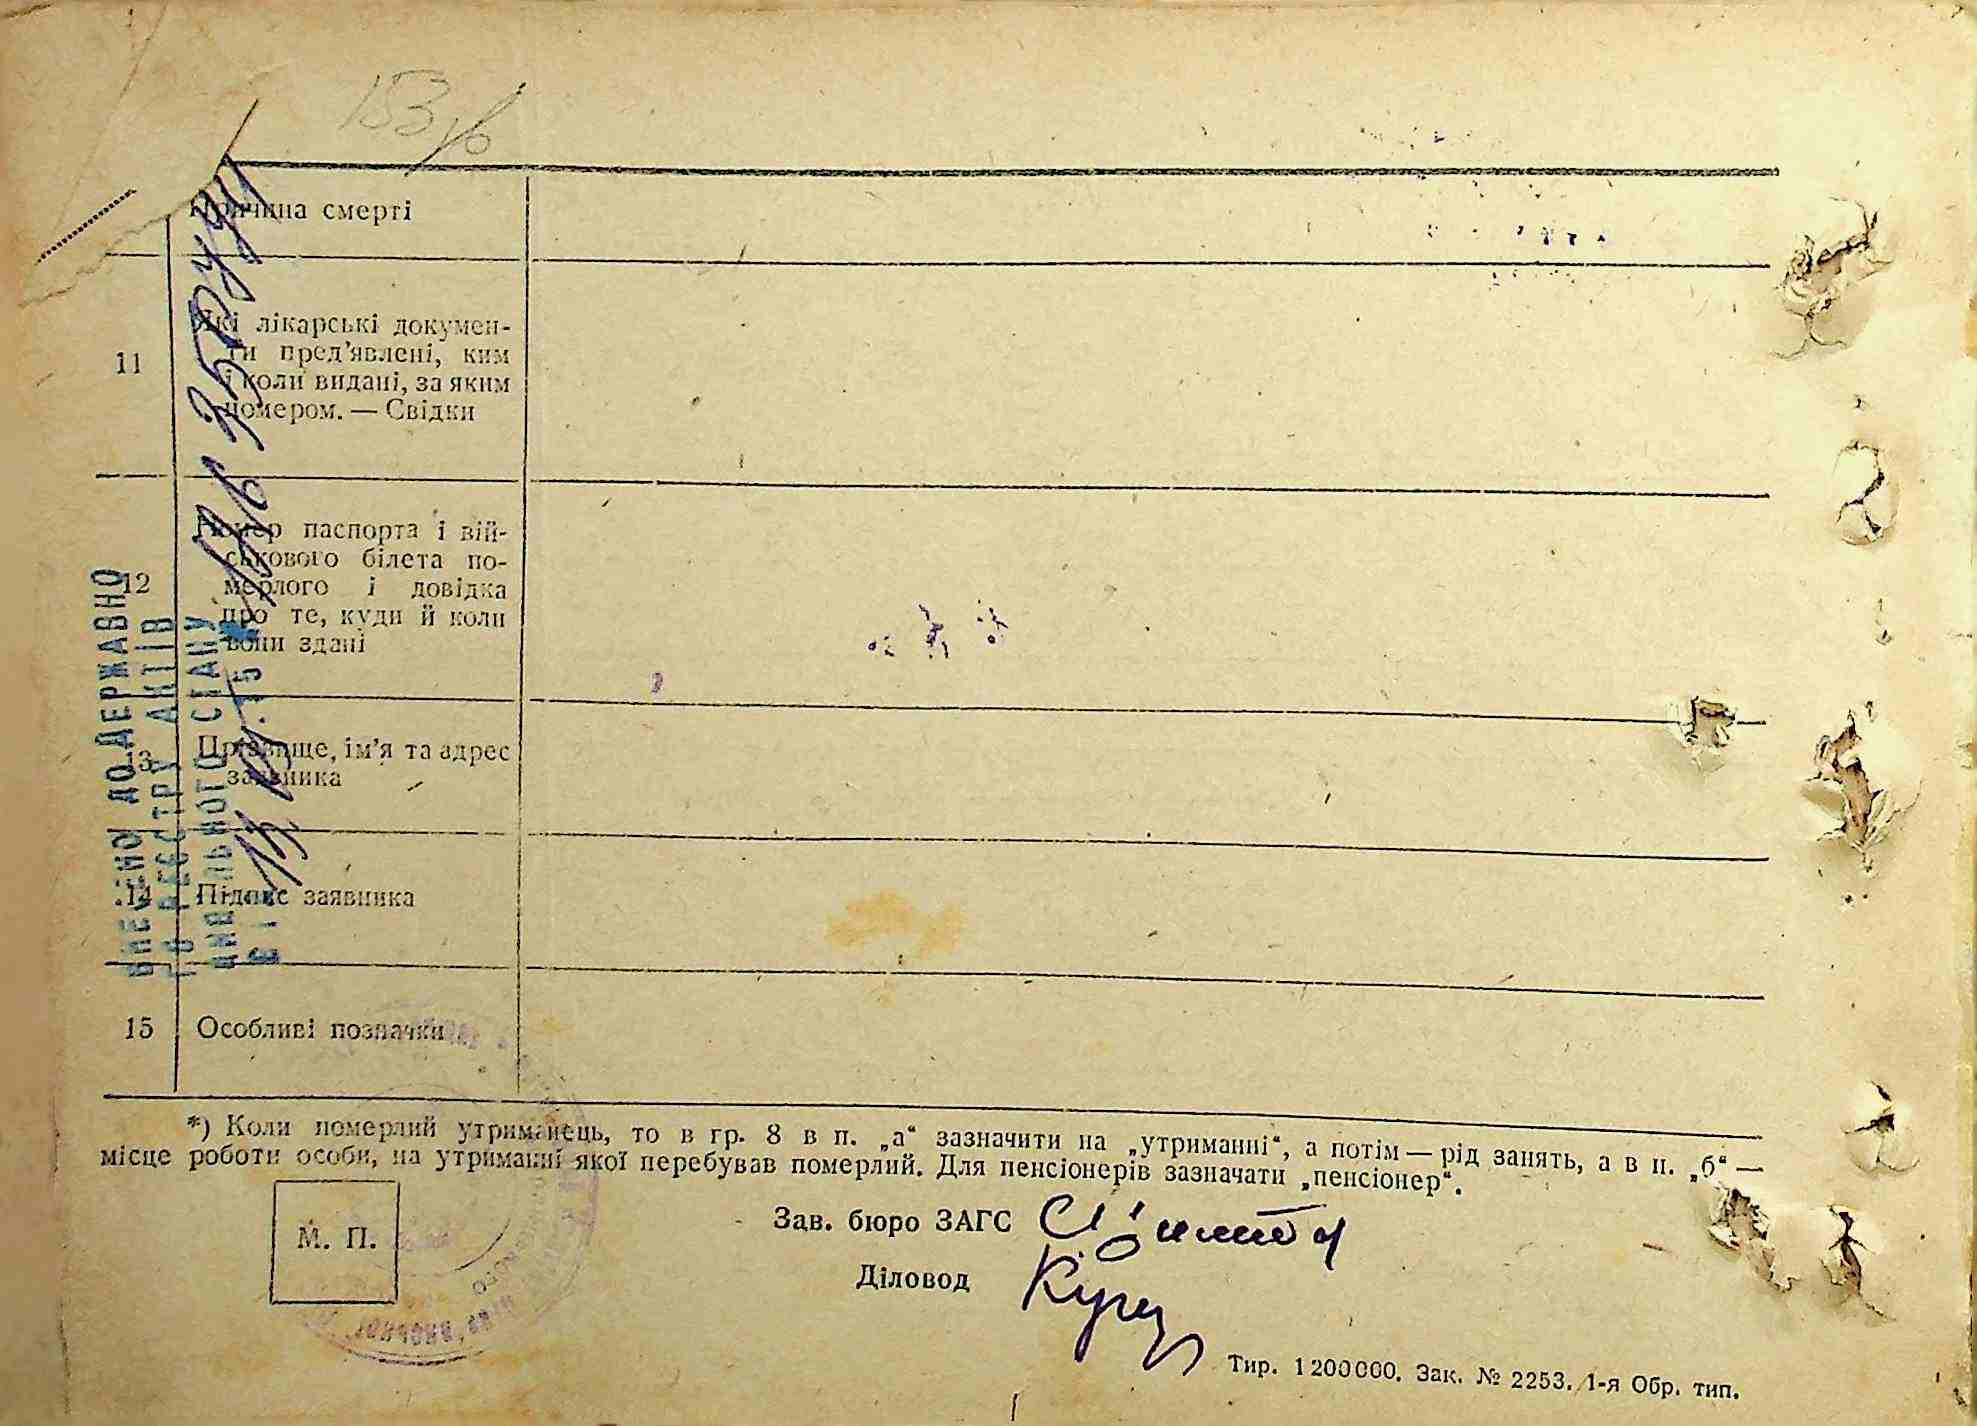 153
Причина смерті
11
Які лікарські докумен-
ти пред’явлені, ким
і коли видані, за яким
номером. — Свідки
12
Номер паспорта і вій-
ськового білета по-
мерлого і довідка
про те, куди й коли
вони здані
13
Прізвище, ім’я та адрес
заявника
14
Підпис заявника
15
Особливі позначки
ВНЕСЕНО ДО ДЕРЖАВНО
ГО РЕЄСТРУ АКТІВ
ЦИВІЛЬНОГО СТАНУ
*) Коли померлий утриманець, то в гр. 8 в п. „а“ зазначити на „утриманні“, а потім — рід занять, а в п. „б“ —
місце роботи особи, на утриманні якої перебував померлий. Для пенсіонерів зазначати „пенсіонер“.
М. П.
Зав. бюро ЗАГС
Діловод
Тир. 1200000. Зак. № 2253. 1-я Обр. тип.